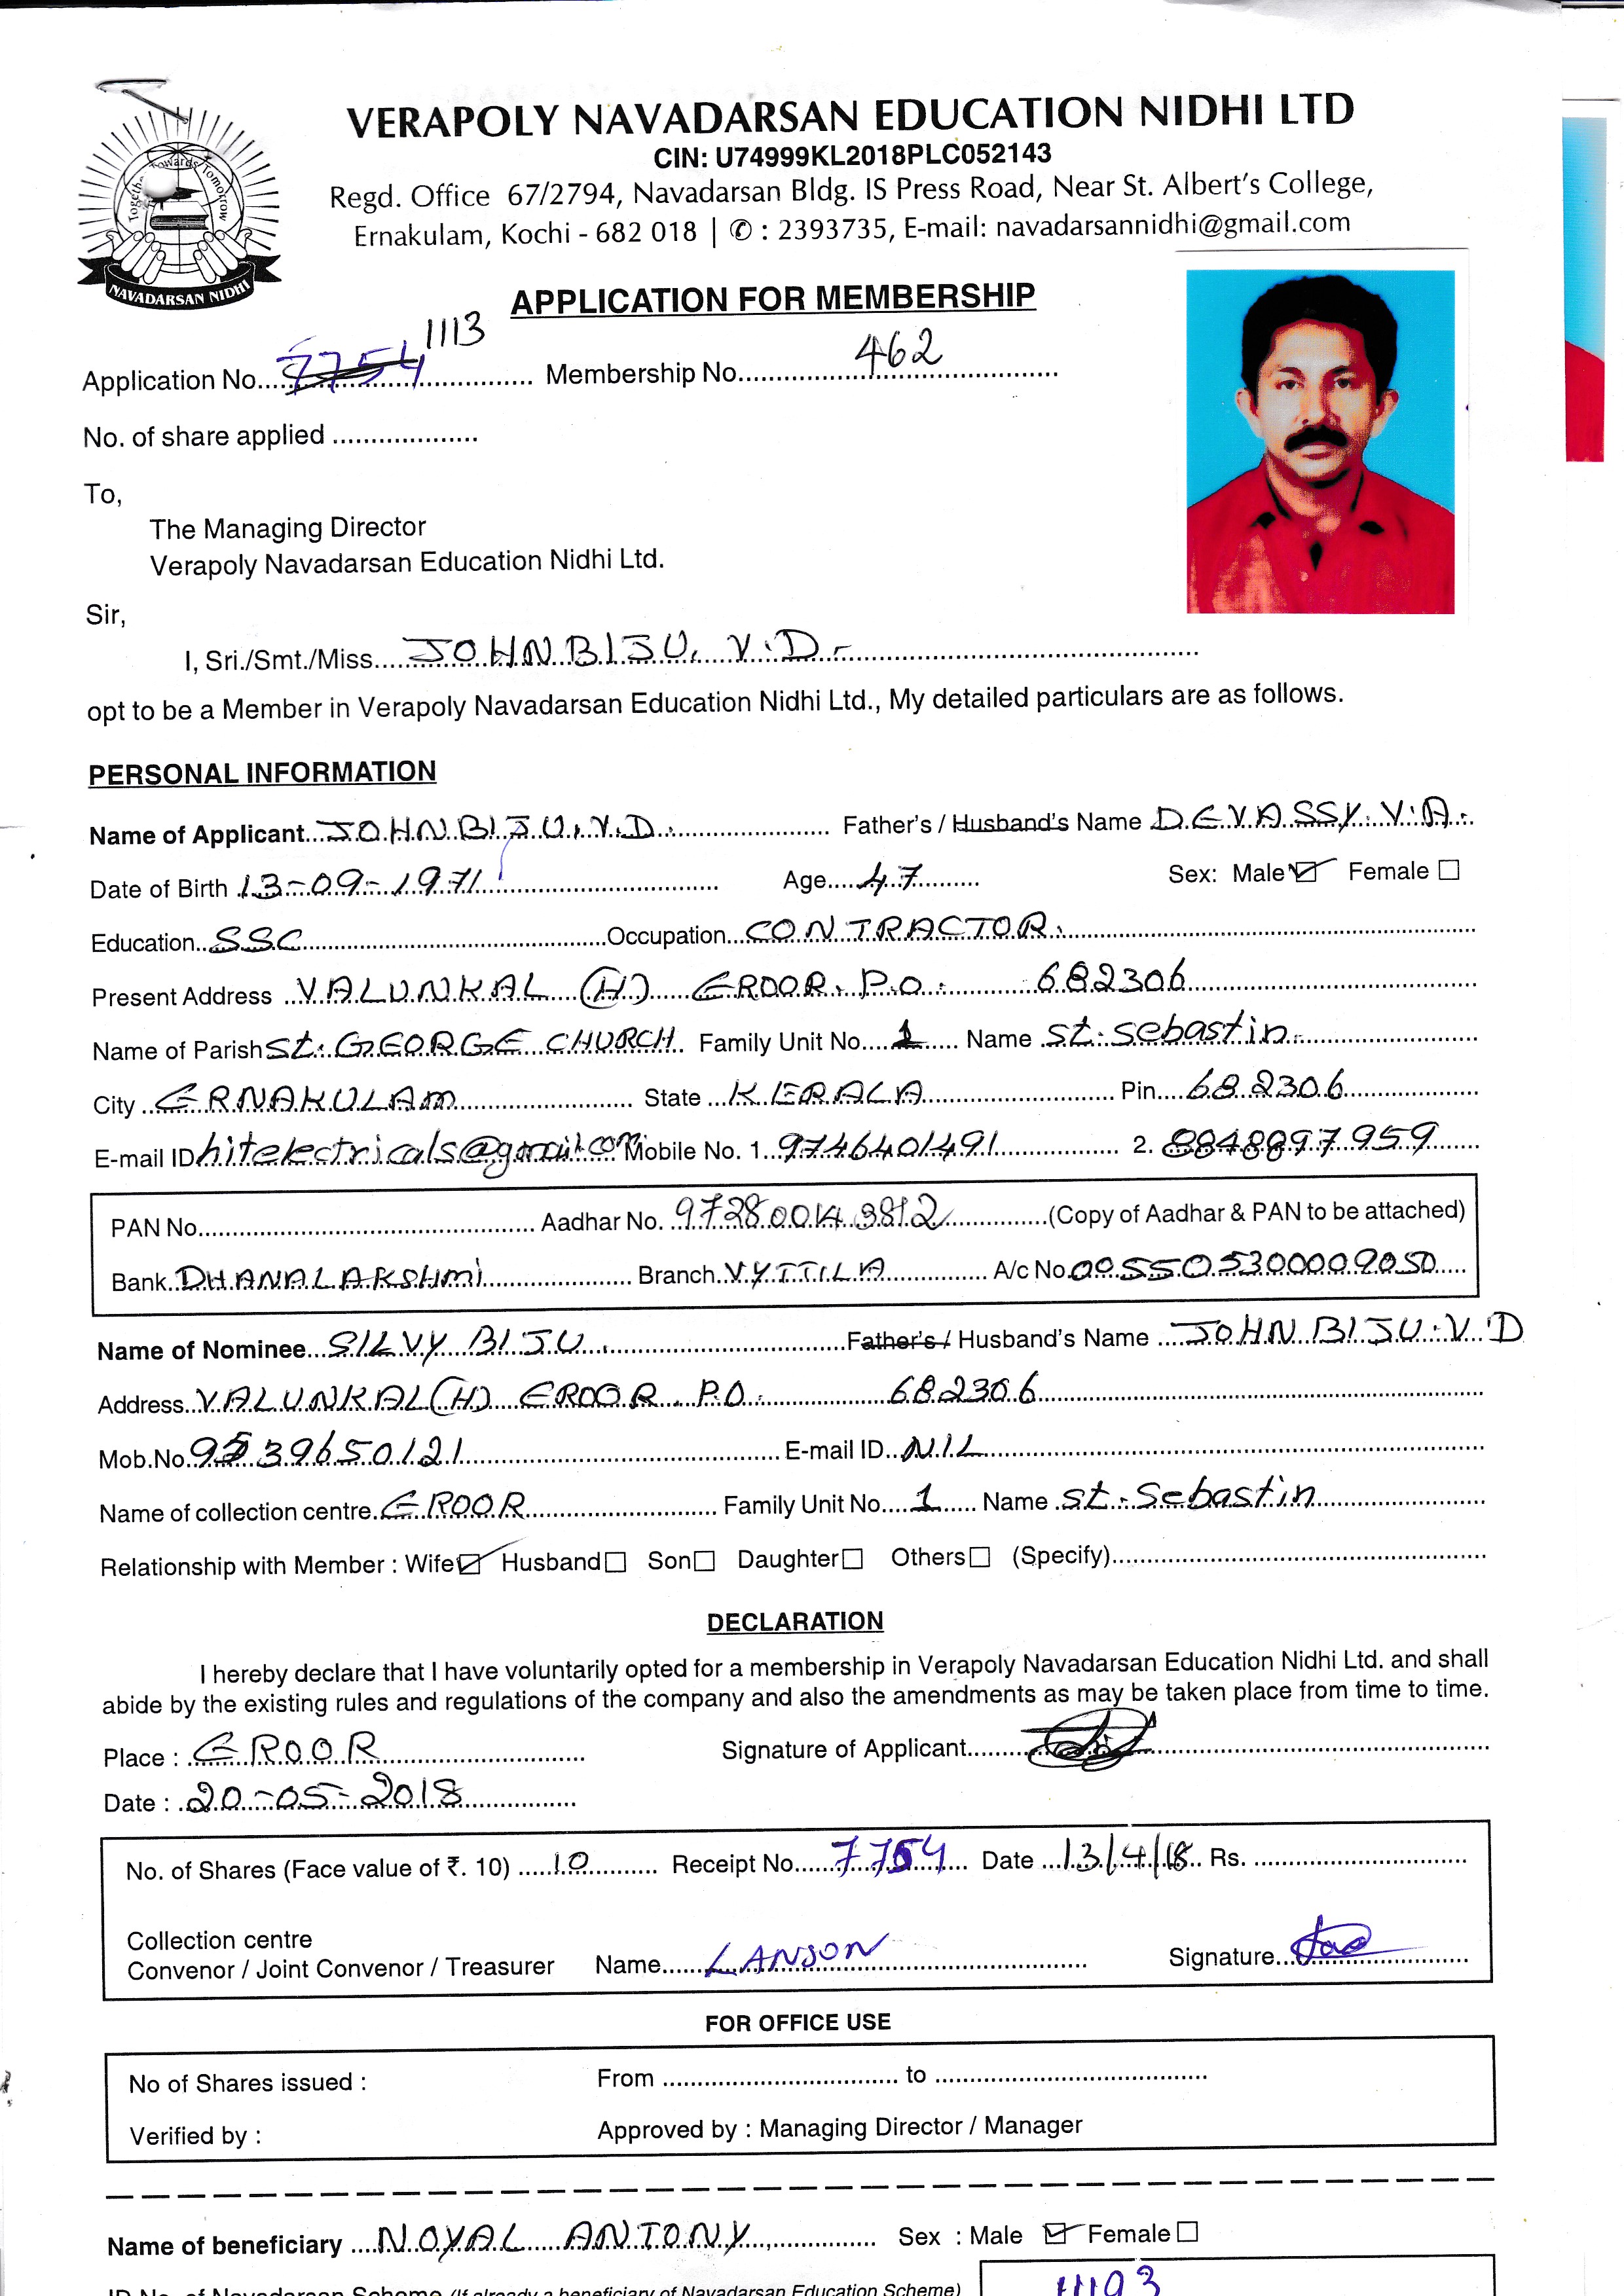 Together Towards Tomorrow
NAVADARSAN NIDHI
VERAPOLY NAVADARSAN EDUCATION NIDHI LTD
CIN: U74999KL2018PLC052143
Regd. Office 67/2794, Navadarsan Bldg. IS Press Road, Near St. Albert's College,
Ernakulam, Kochi - 682 018 | ✆ : 2393735, E-mail: navadarsannidhi@gmail.com
APPLICATION FOR MEMBERSHIP
1113
Application No. 7754 Membership No. 462
No. of share applied
To,
The Managing Director
Verapoly Navadarsan Education Nidhi Ltd.
Sir,
I, Sri./Smt./Miss. JOHN BIJU. V.D.
opt to be a Member in Verapoly Navadarsan Education Nidhi Ltd., My detailed particulars are as follows.
PERSONAL INFORMATION
Name of Applicant JOHN BIJU. V.D. Father's / Husband's Name DEVASSY. V.A.
Date of Birth 13-09-1971 Age 47 Sex: Male ☑ Female ☐
Education SSC Occupation CONTRACTOR.
Present Address VALUNKAL (H) EROOR. P.O. 682306
Name of Parish St. GEORGE CHURCH Family Unit No. 1 Name St. Sebastin.
City ERNAKULAM State KERALA Pin 682306
E-mail ID hitelectricals@gmail.com Mobile No. 1. 9746401491 2. 8848897959
PAN No. Aadhar No. 972800143812 (Copy of Aadhar & PAN to be attached)
Bank DHANALAKSHMI Branch VYTTILA A/c No. 005505300009050
Name of Nominee SILVY BIJU. Father's / Husband's Name JOHN BIJU. V.D
Address VALUNKAL (H) EROOR. P.O. 682306
Mob.No. 9539650121 E-mail ID NIL
Name of collection centre EROOR Family Unit No. 1 Name St. Sebastin
Relationship with Member : Wife ☑ Husband ☐ Son ☐ Daughter ☐ Others ☐ (Specify)
DECLARATION
I hereby declare that I have voluntarily opted for a membership in Verapoly Navadarsan Education Nidhi Ltd. and shall
abide by the existing rules and regulations of the company and also the amendments as may be taken place from time to time.
Place : EROOR Signature of Applicant
Date : 20-05-2018
No. of Shares (Face value of ₹. 10) 10 Receipt No. 7754 Date 13/4/18 Rs.
Collection centre
Convenor / Joint Convenor / Treasurer Name LANSON Signature
FOR OFFICE USE
No of Shares issued : From to
Verified by : Approved by : Managing Director / Manager
Name of beneficiary NOYAL ANTONY Sex : Male ☑ Female ☐
ID No. of Navadarsan Scheme (If already a beneficiary of Navadarsan Education Scheme)